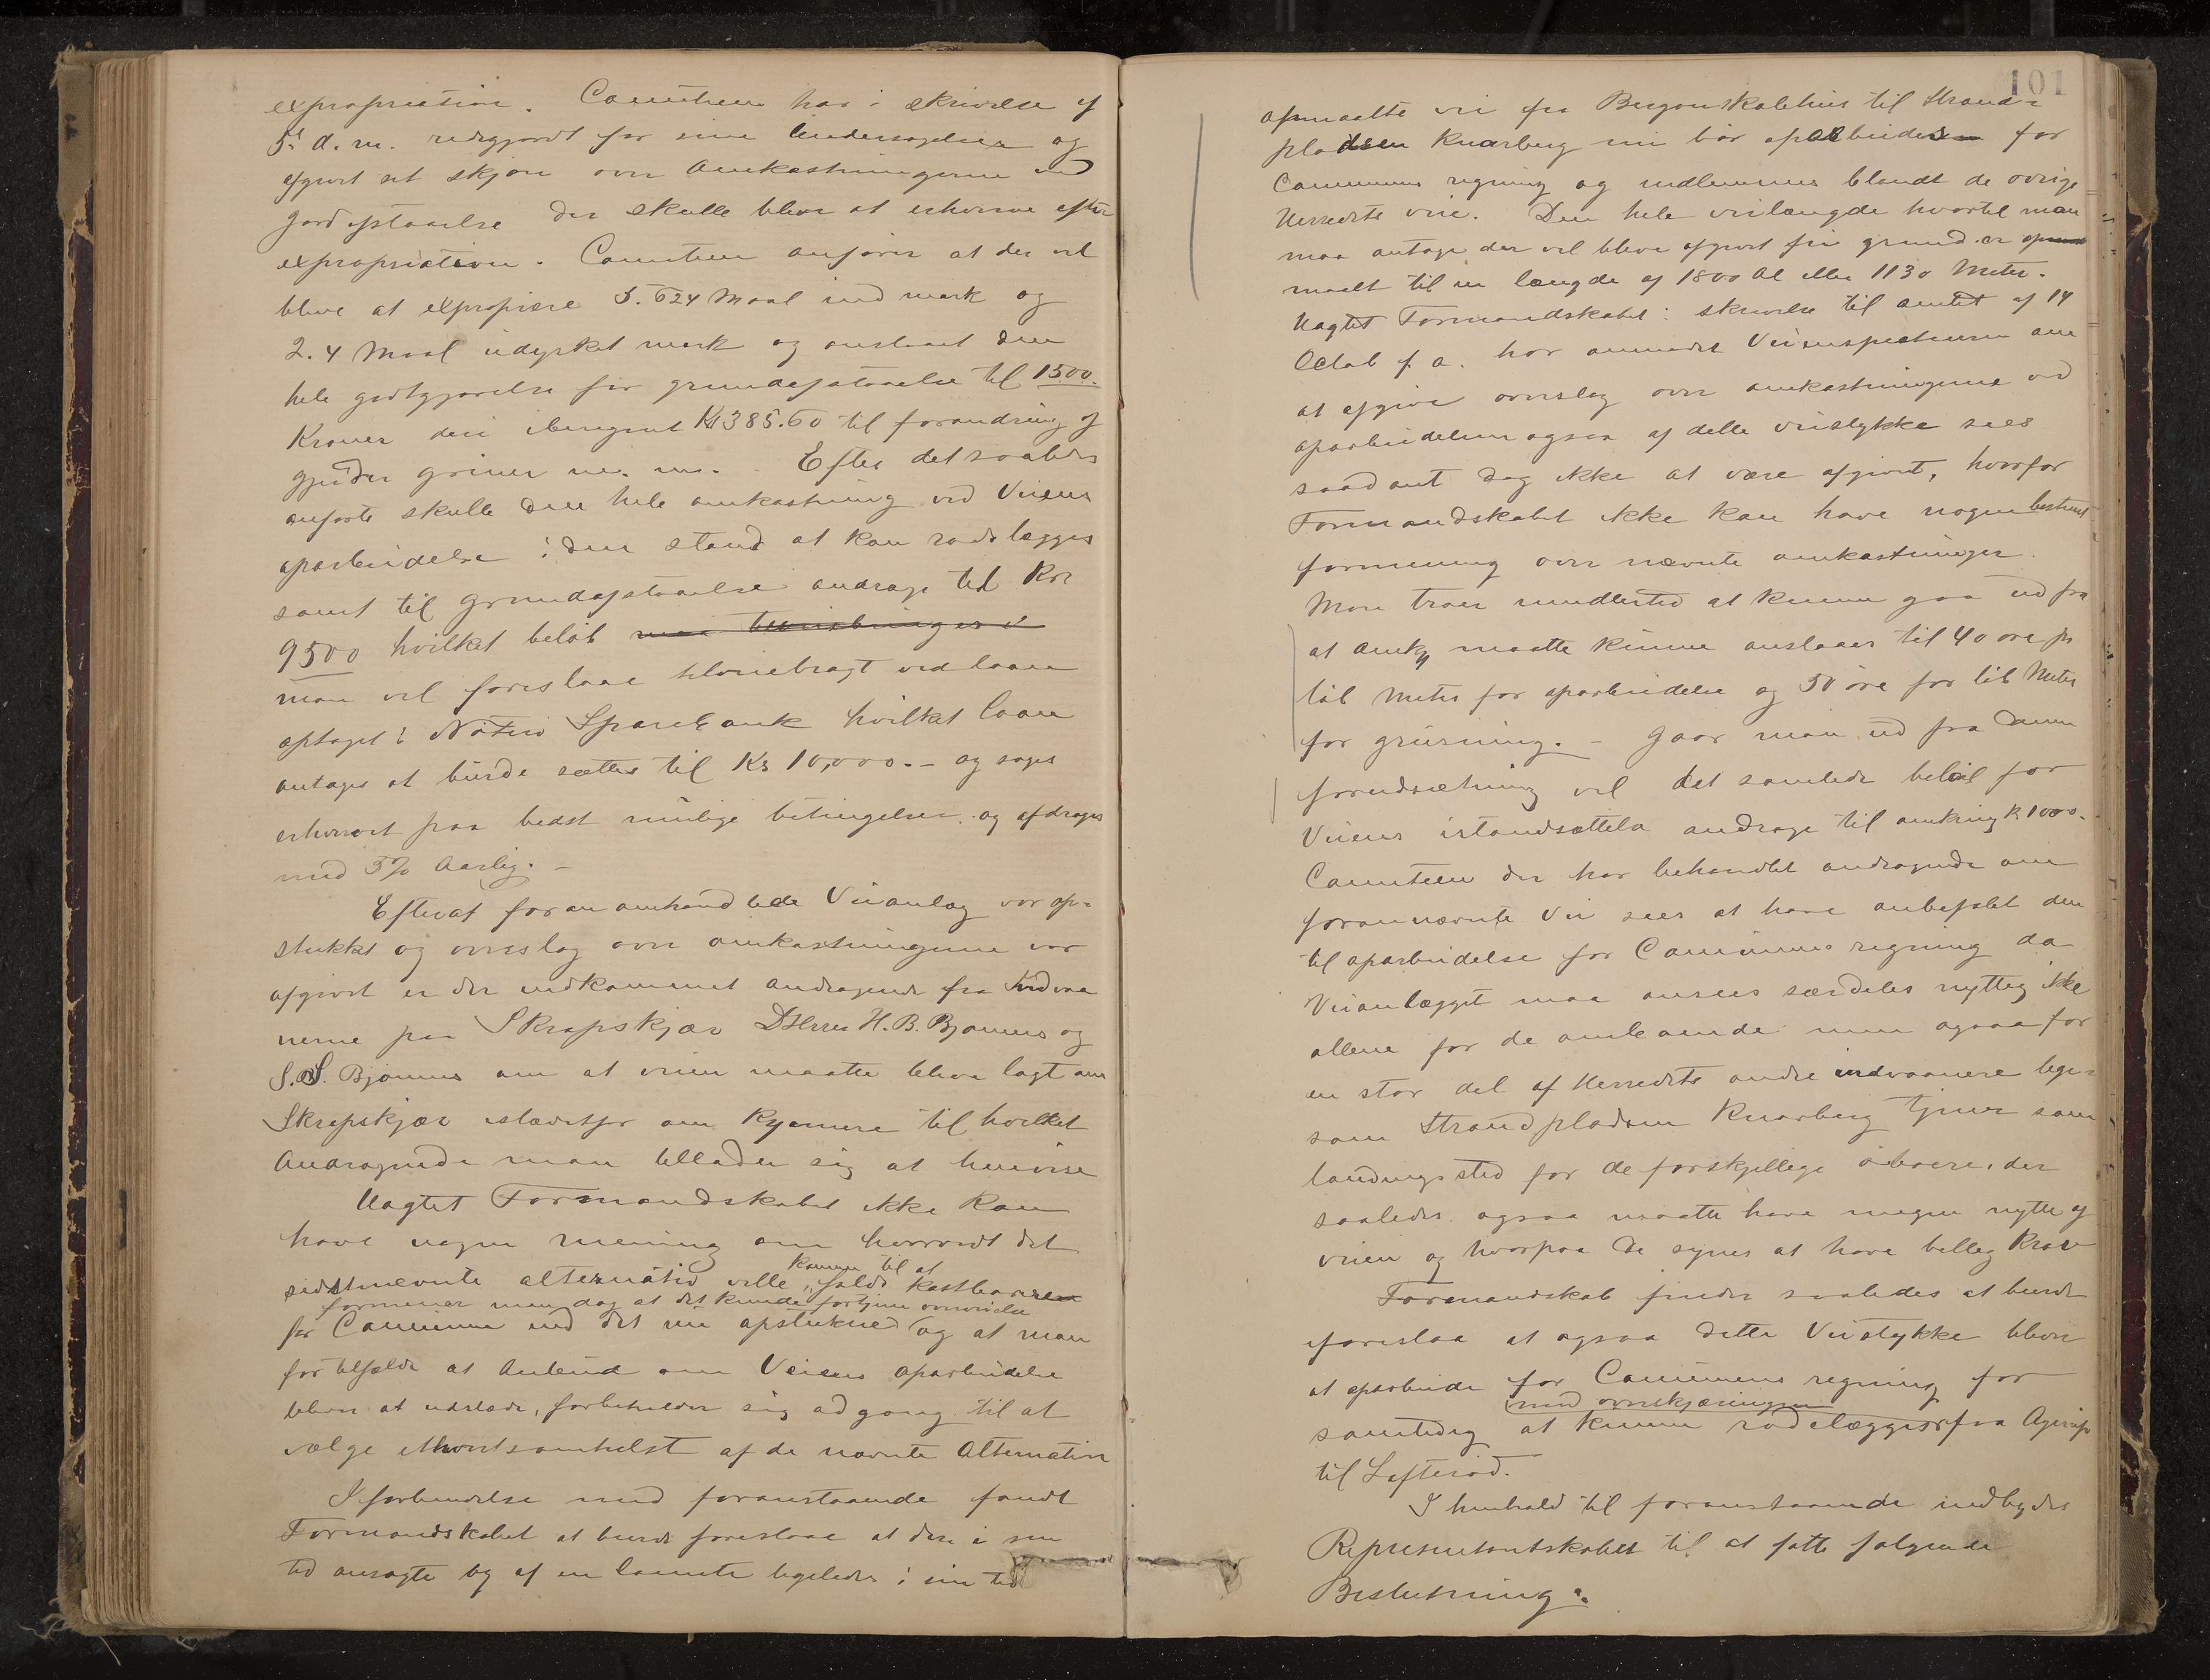 expropriation. Comiteen har i skrivelse af
5' d. m. redegjordt for sine Undersøgelser og
afgivet et skjøn over Omkostningerne ved
Jordafstaaelse der skulle blive at erhverve efter
expropriation. Comiteen anfører at der vil
blive at expropiere 5.624 Maal ind mark og
2.4 Maal udyrket mark og anslaaet den
hele godtgjørelse for grundafstaaelse til 1500.
Kroner deri iberegnet Kr 385.60 til forandring af
gjerder griner m. m. Efter det saaledes
anførte skulle den hele omkostning ved Veiens
oparbeidelse i den stand at kan rodelægges
samt til Grundafstaaelse andrage til Kr
9500 hvilket beløb
man vil foreslaae tilveiebragt ved laan
optaget i Nøterø Sparebank hvilket laan
antages at burde sættes til Kr 10,000.- og søges
erhvervet paa bedst mulige betingelser og afdrages
med 5% Aarlig.-
Efterat foran omhandlede Veianlæg var op=
stukket og overslag over omkostningerne var
afgivet er der indkommet andragende fra Indvaa
nerne paa Skrapskjær DHerrer H. B. Bjønnes og
S. S. Bjønnes om at veien maatte blive lagt om
Skrapskjær istædetfor om Kjernere til hvilket
Andragende man tillader sig at henvise
Uagtet Formandskabet ikke kan
have nogen mening om hvorvidt det
sidstnævnte alternativ ville komme til at falde kostbarere
formener man dog at det kunde fortjene overveielse
for Communen end det nu opstukne og at man
for tilfælde at Anbud om Veiens oparbeidelse
bliver at udstede, forbeholder sig adgang til at
vælge ethvertsomhelst af de nævnte Alternativer
I forbindelse med foranstaaende fandt
Formandskabet at burde foreslaae at den i sin
tid ansøgte og af en Comite ligeledes i sin tid
101
opmaalte vei fra Bergans Skolehus til Strand=
pladsen Knarberg nu bør oparbeides for
Communens regning og indlemmes blandt de øvrige
Herredets veie. Den hele veilængde hvortil man
maa antage der vil blive afgivet fri grund er op
maalt til en længde af 1800 Al eller 1130 Meter.
Uagtet Formandskabet i skrivelse til Amtet af 14
Octob f. a. har anmodet Veiinspecteuren om
at afgive overslag over omkostningerne ved
oparbeidelsen ogsaa af dette veistykke sees
saadant dog ikke at være afgivet, hvorfor
Formandskabet ikke kan have nogen bestemt
formening over nævnte omkostninger.
Man troer imidlertid at kunne gaa ud fra
at Omk maatte kunne anslaaes til 40 øre pr
løb Meter for oparbeidelse og 50 øre for løb Meter
for grusning.- Gaar man ud fra denne
forudsætning vil det samlede beløb for
Veiens istandsættelse andrage til omkring Kr 1000.
Comiteen der har behandlet andragende om
forannævnte Vei sees at have anbefalet den
til oparbeidelse for Communens regning da
Veianlægget maa ansees særdeles nyttig ikke
allene for de omboende men ogsaa for
en stor del af Herredets andre indvaanere lige=
som Strandpladsen Knarberg tjener som
landingssted for de forskjellige øboere, der
saaledes ogsaa maatte have megen nytte af
veien og hvorpaa de synes at have billeg Krav
Formandskab finder saaledes at burde
foreslaa at ogsaa dette Veistykke bliver
at oparbeide for Communens regning for
med overskjæringen
samtidig at kunne rodelægges fra Agerup
til Lofterød.
I henhold til foranstaaende indbydes
Representantskabet til at fatte følgende
Beslutning: